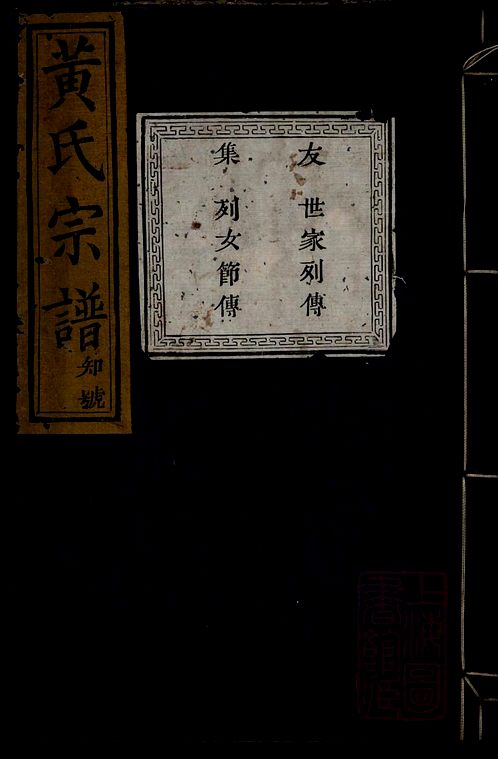 黃氏宗譜
知號
友 世家列傳
集 列女節傳
上海圖
書館藏